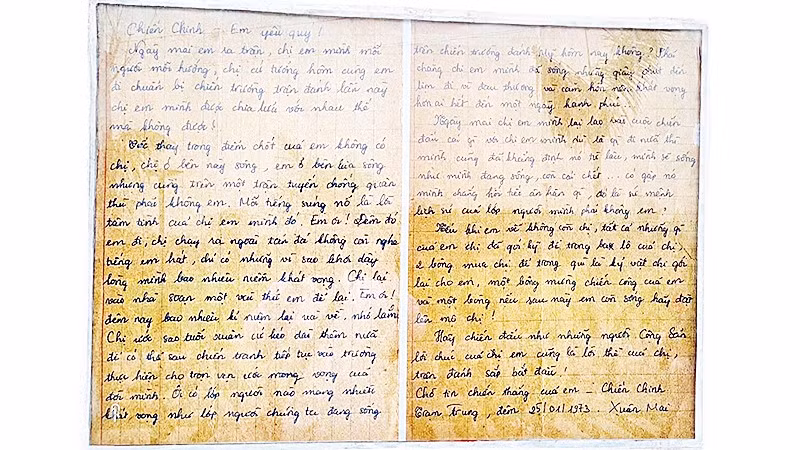 Chiến Chinh - Em yêu quý!
Ngày mai em ra trận, chị em mình mỗi
người mỗi hướng, chị cứ tưởng hôm cùng em
đi chuẩn bị chiến trường trận đánh lần này
chị em mình được chia lửa với nhau thế
mà không được!
thay trong điểm chốt của em không có
chị, chị ở bên này sông, em ở bên kia sông
nhưng cùng trên một trận tuyến chống quân
thù phải không em. Mỗi tiếng súng nổ là lời
tâm tình của chị em mình đó. Em ơi! Đêm đó
em đi, chị chạy ra ngoài thì đã không còn nghe
tiếng em hát, chỉ có những vì sao khơi dậy
lòng mình bao nhiêu niềm khát vọng. Chị lại
vào nhà soạn một vài thứ em để lại. Em ơi!
đêm nay bao nhiêu kỉ niệm lại về, nhớ lắm
Chị ước sao tuổi xuân cứ kéo dài thêm nữa
để có thể sau chiến tranh tiếp tục vào trường
thực hiện cho trọn vẹn ước mong của
đời mình. Ôi có lớp người nào mang nhiều
khát vọng như lớp người chúng ta đang sống
trên chiến trường đánh Mỹ hôm nay không?
chăng chị em mình đã sống những giây phút đến
lìm đi vì đau thương và căm hờn nên khát vọng
hơn ai hết đến một ngày hạnh phúc.
Ngày mai chị em mình lại lao vào cuộc chiến
đấu cái gì với chị em mình dù là gì đi nữa thì
mình cũng đã khẳng định nó từ lâu, mình sẽ sống
như mình đang sống, còn cái chết... có gặp nó
mình chẳng hối tiếc ân hận gì, đó là sứ mệnh
lịch sử của lớp người mình phải không em?
Nếu khi em về không còn chị, tất cả những gì
của em chị đã gói kỹ để trong ba lô của chị,
2 bông mua chị để trong quà là kỷ vật chị gởi
lại cho em, một bông mừng chiến công của em
và một bông nếu sau này em còn sống hãy đặt
lên mộ chị!
Hãy chiến đấu như những người Cộng Sản
lời chúc của chị em cũng là lời thề của chị,
trận đánh sắp bắt đầu!
Chờ tin chiến thắng của em - Chiến Chinh
Gran Trung, đêm 25/01/1973. Xuân Mai